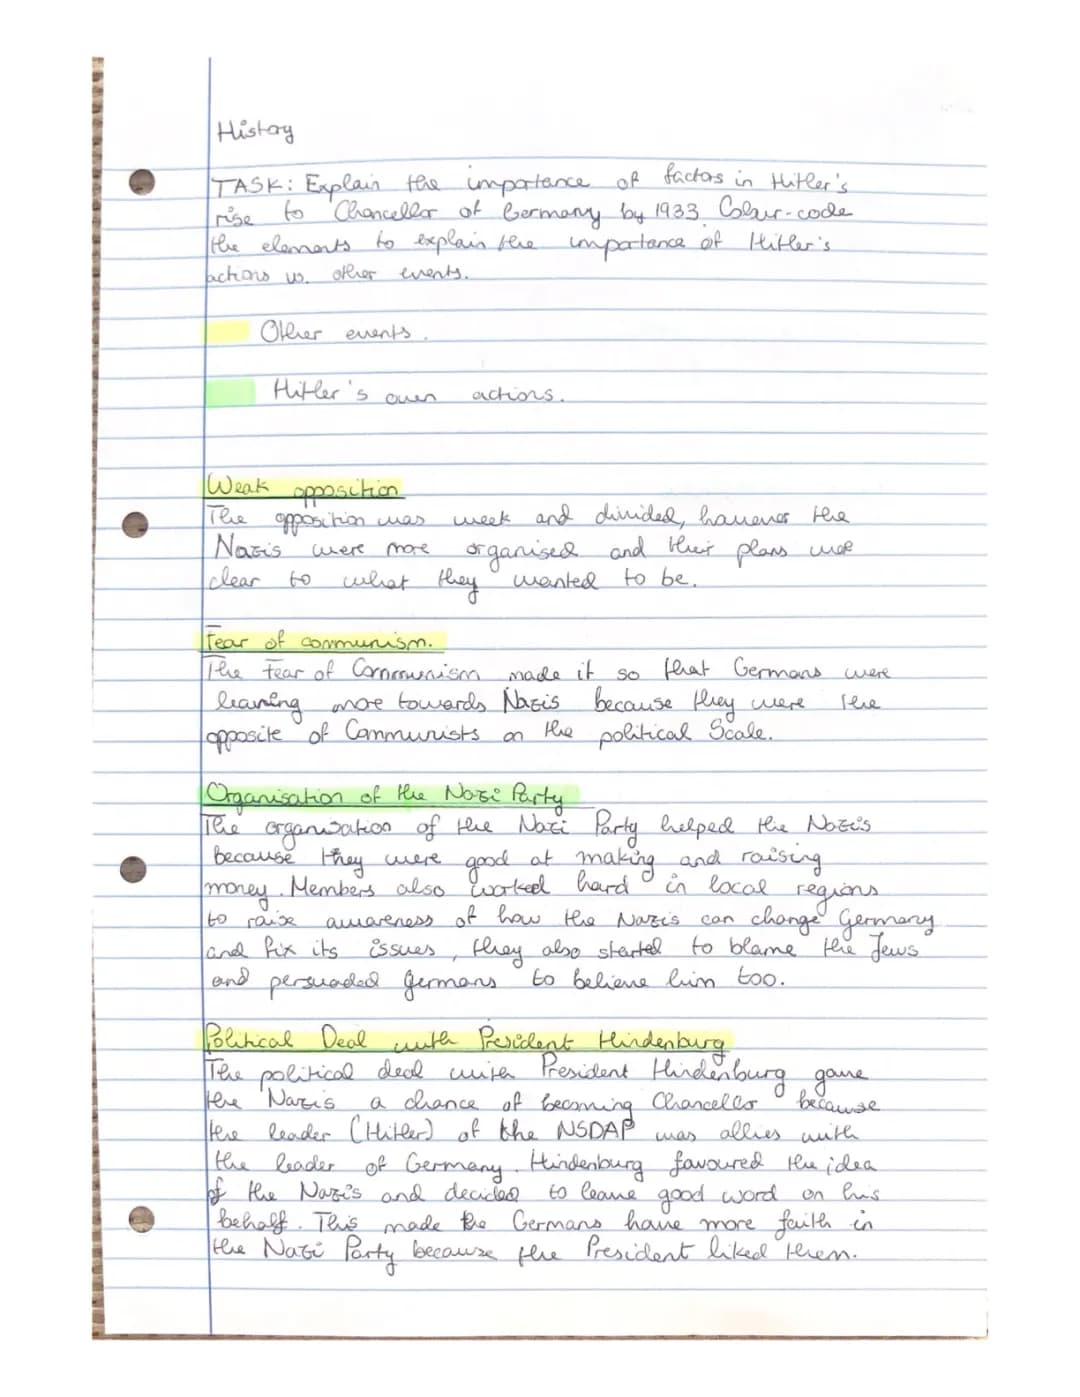 History
TASK: Explain the importance of factors in Hitler's
rise to Chancellor of Germany by 1933. Colour-code
the elements to explain the importance of Hitler's
actions vs. other events.
Other events.
Hitler's own actions.
Weak opposition
The opposition was week and divided, however the
Nazis were more organised and their plans were
clear to what they wanted to be.
Fear of communism.
The Fear of Communism made it so that Germans were
leaning more towards Nazis because they were the
opposite of Communists on the political Scale.
Organisation of the Nazi Party
The organisation of the Nazi Party helped the Nazis
because they were good at making and raising
money. Members also worked hard in local regions
to raise awareness of how the Nazis can change Germany
and fix its issues, they also started to blame the Jews
and persuaded Germans to believe him too.
Political Deal with President Hindenburg
The political deal with President Hindenburg gave
the Nazis a chance of becoming Chancellor because
the leader (Hitler) of the NSDAP was allies with
the leader of Germany. Hindenburg favoured the idea
of the Nazis and decided to leave good word on his
behalf. This made the Germans have more faith in
the Nazi Party because the President liked them.